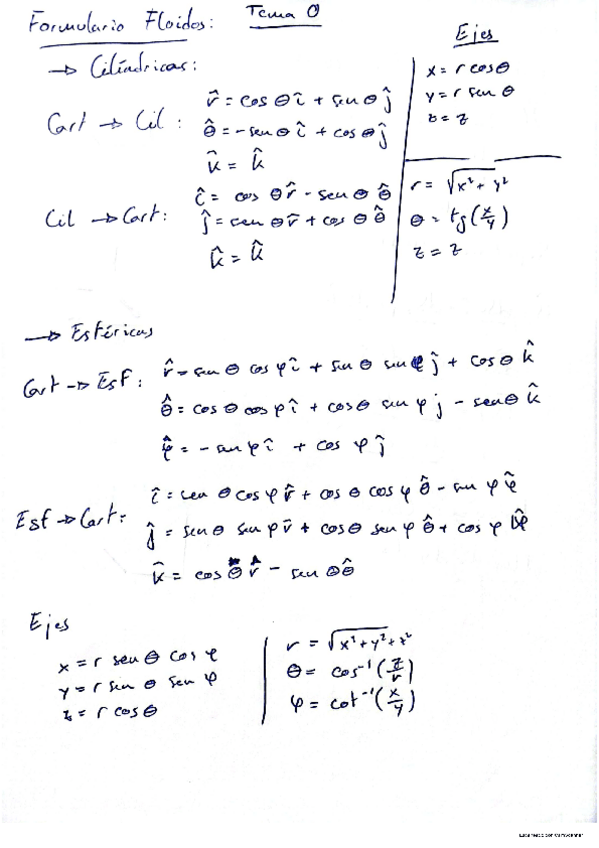 Formulario Fluidos: Tema 0
→ Cilíndricas:
Cart → Cil:
r̂ = cos θ î + sen θ ĵ
θ̂ = -sen θ î + cos θ ĵ
k̂ = k̂
Cil → Cart:
î = cos θ r̂ - sen θ θ̂
ĵ = sen θ r̂ + cos θ θ̂
k̂ = k̂
Ejes
x = r cos θ
y = r sen θ
z = z
r = √(x² + y²)
θ = tg(x/y)
z = z
→ Esféricas
Cart → Esf:
r̂ = sen θ cos φ î + sen θ sen φ ĵ + cos θ k̂
θ̂ = cos θ cos φ î + cos θ sen φ ĵ - sen θ k̂
φ̂ = - sen φ î + cos φ ĵ
Esf → Cart:
î = sen θ cos φ r̂ + cos θ cos φ θ̂ - sen φ φ̂
ĵ = sen θ sen φ r̂ + cos θ sen φ θ̂ + cos φ φ̂
k̂ = cos θ r̂ - sen θ θ̂
Ejes
x = r sen θ cos φ
y = r sen θ sen φ
z = r cos θ
r = √(x² + y² + z²)
θ = cos⁻¹(z/r)
φ = cot⁻¹(x/y)